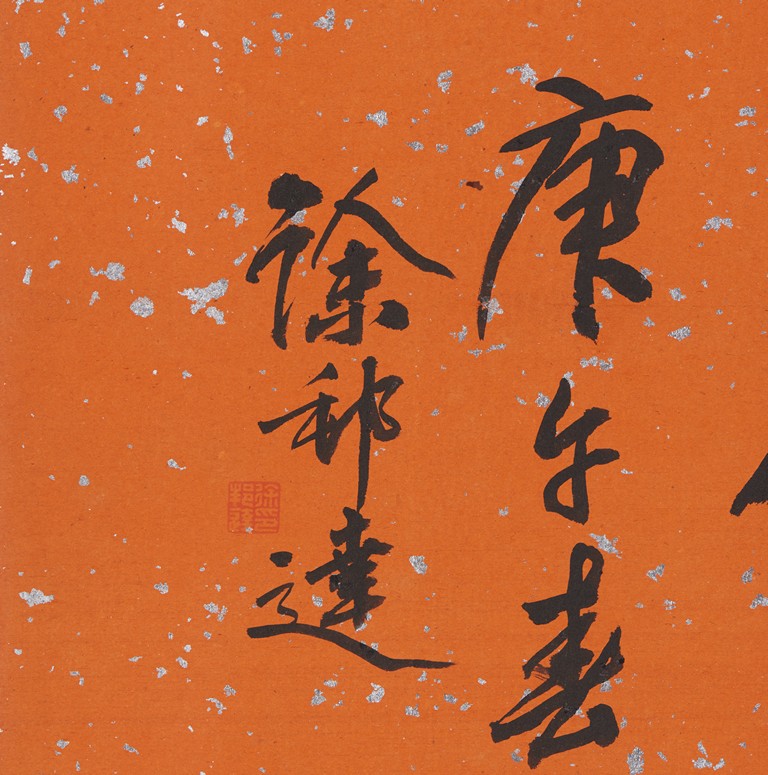 庚午春
徐邦達